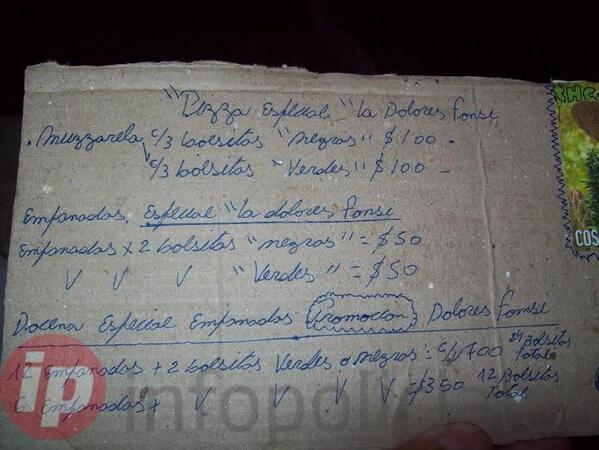 "Pizza Especial_" la Dolores Fonsi
. Muzzarela c/3 bolsitas "negras" $100 -
c/3 bolsitas "Verdes" $100 -
Empanadas, Especial "la dolores fonsi
Empanadas x 2 bolsitas "negras" = $50
V V V "Verdes" = $50
Docena Especial Empanadas Promocion Dolores Fonsi
12 Empanadas + 2 bolsitas Verdes o negras = 700 24 Bolsitas Total
6 Empanadas + V V V V = $350 12 Bolsitas Total
COS
ip infopol